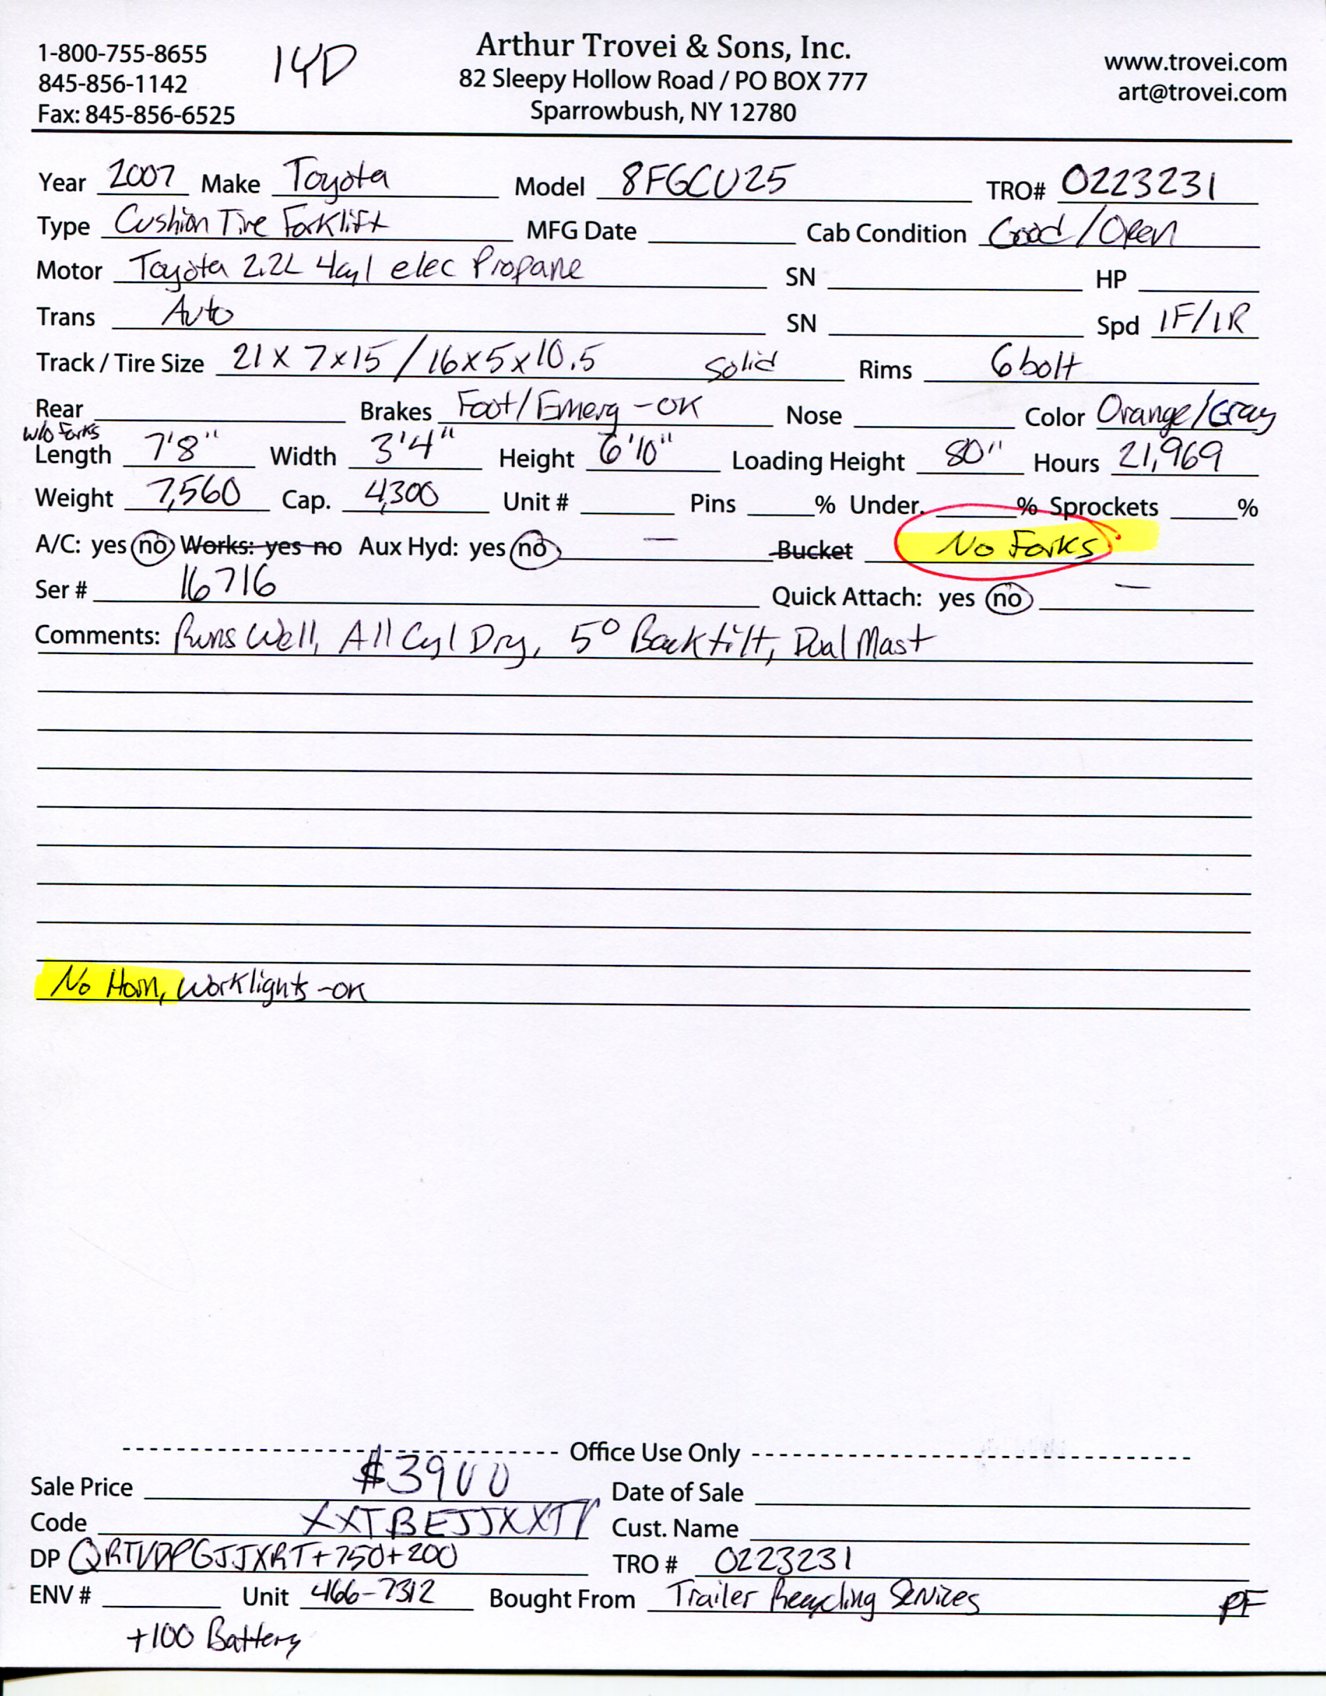 1-800-755-8655
845-856-1142
Fax: 845-856-6525
14D
Arthur Trovei & Sons, Inc.
82 Sleepy Hollow Road / PO BOX 777
Sparrowbush, NY 12780
www.trovei.com
art@trovei.com
Year 2007 Make Toyota Model 8FGCU25 TRO# 0223231
Type Cushion Tire Forklift MFG Date Cab Condition Good/Open
Motor Toyota 2.2L 4cyl elec Propane SN HP
Trans Auto SN Spd 1F/1R
Track / Tire Size 21x7x15/16x5x10.5 Solid Rims 6 bolt
Rear Brakes Foot/Emerg-OK Nose Color Orange/Gray
w/o Forks
Length 7'8" Width 3'4" Height 6'10" Loading Height 80" Hours 21,969
Weight 7,560 Cap. 4,300 Unit # Pins % Under. % Sprockets %
A/C: yes no Works: yes no Aux Hyd: yes no — Bucket No Forks
Ser # 16716 Quick Attach: yes no —
Comments: Runs Well, All Cyl Dry, 5° Backtilt, Dual Mast
No Horn, Worklights-OK
Office Use Only
Sale Price $3900 Date of Sale
Code Cust. Name
DP +750+200 TRO # 0223231
ENV # Unit 466-7312 Bought From Trailer Recycling Services PF
+100 Battery